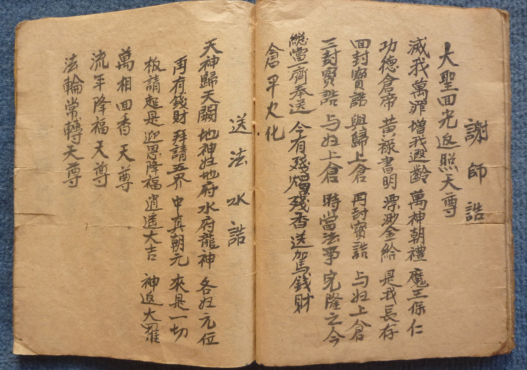 謝師誥
大聖回光返照天尊
滅我萬罪增我遐齡 萬神朝禮 魔王保仁
功德倉帝 黃祿書明 漂渺金給 是我長存
四封寳誥 與歸上倉 再封寳誥 与归上倉
三封寳誥 与归上倉 時當法事 完隆之今
當齋奉送 今有殘燭殘香送駕錢財
倉平火化
送法水誥
天神歸天闕 地神归地府 水府龍神 各归元位
再有錢財 拜請五界 中真朝元 來是一切
板請起是 迎恩降福 逍遥大吉 神返大羅
萬相回香天尊
流年降福天尊
法輪常轉天尊